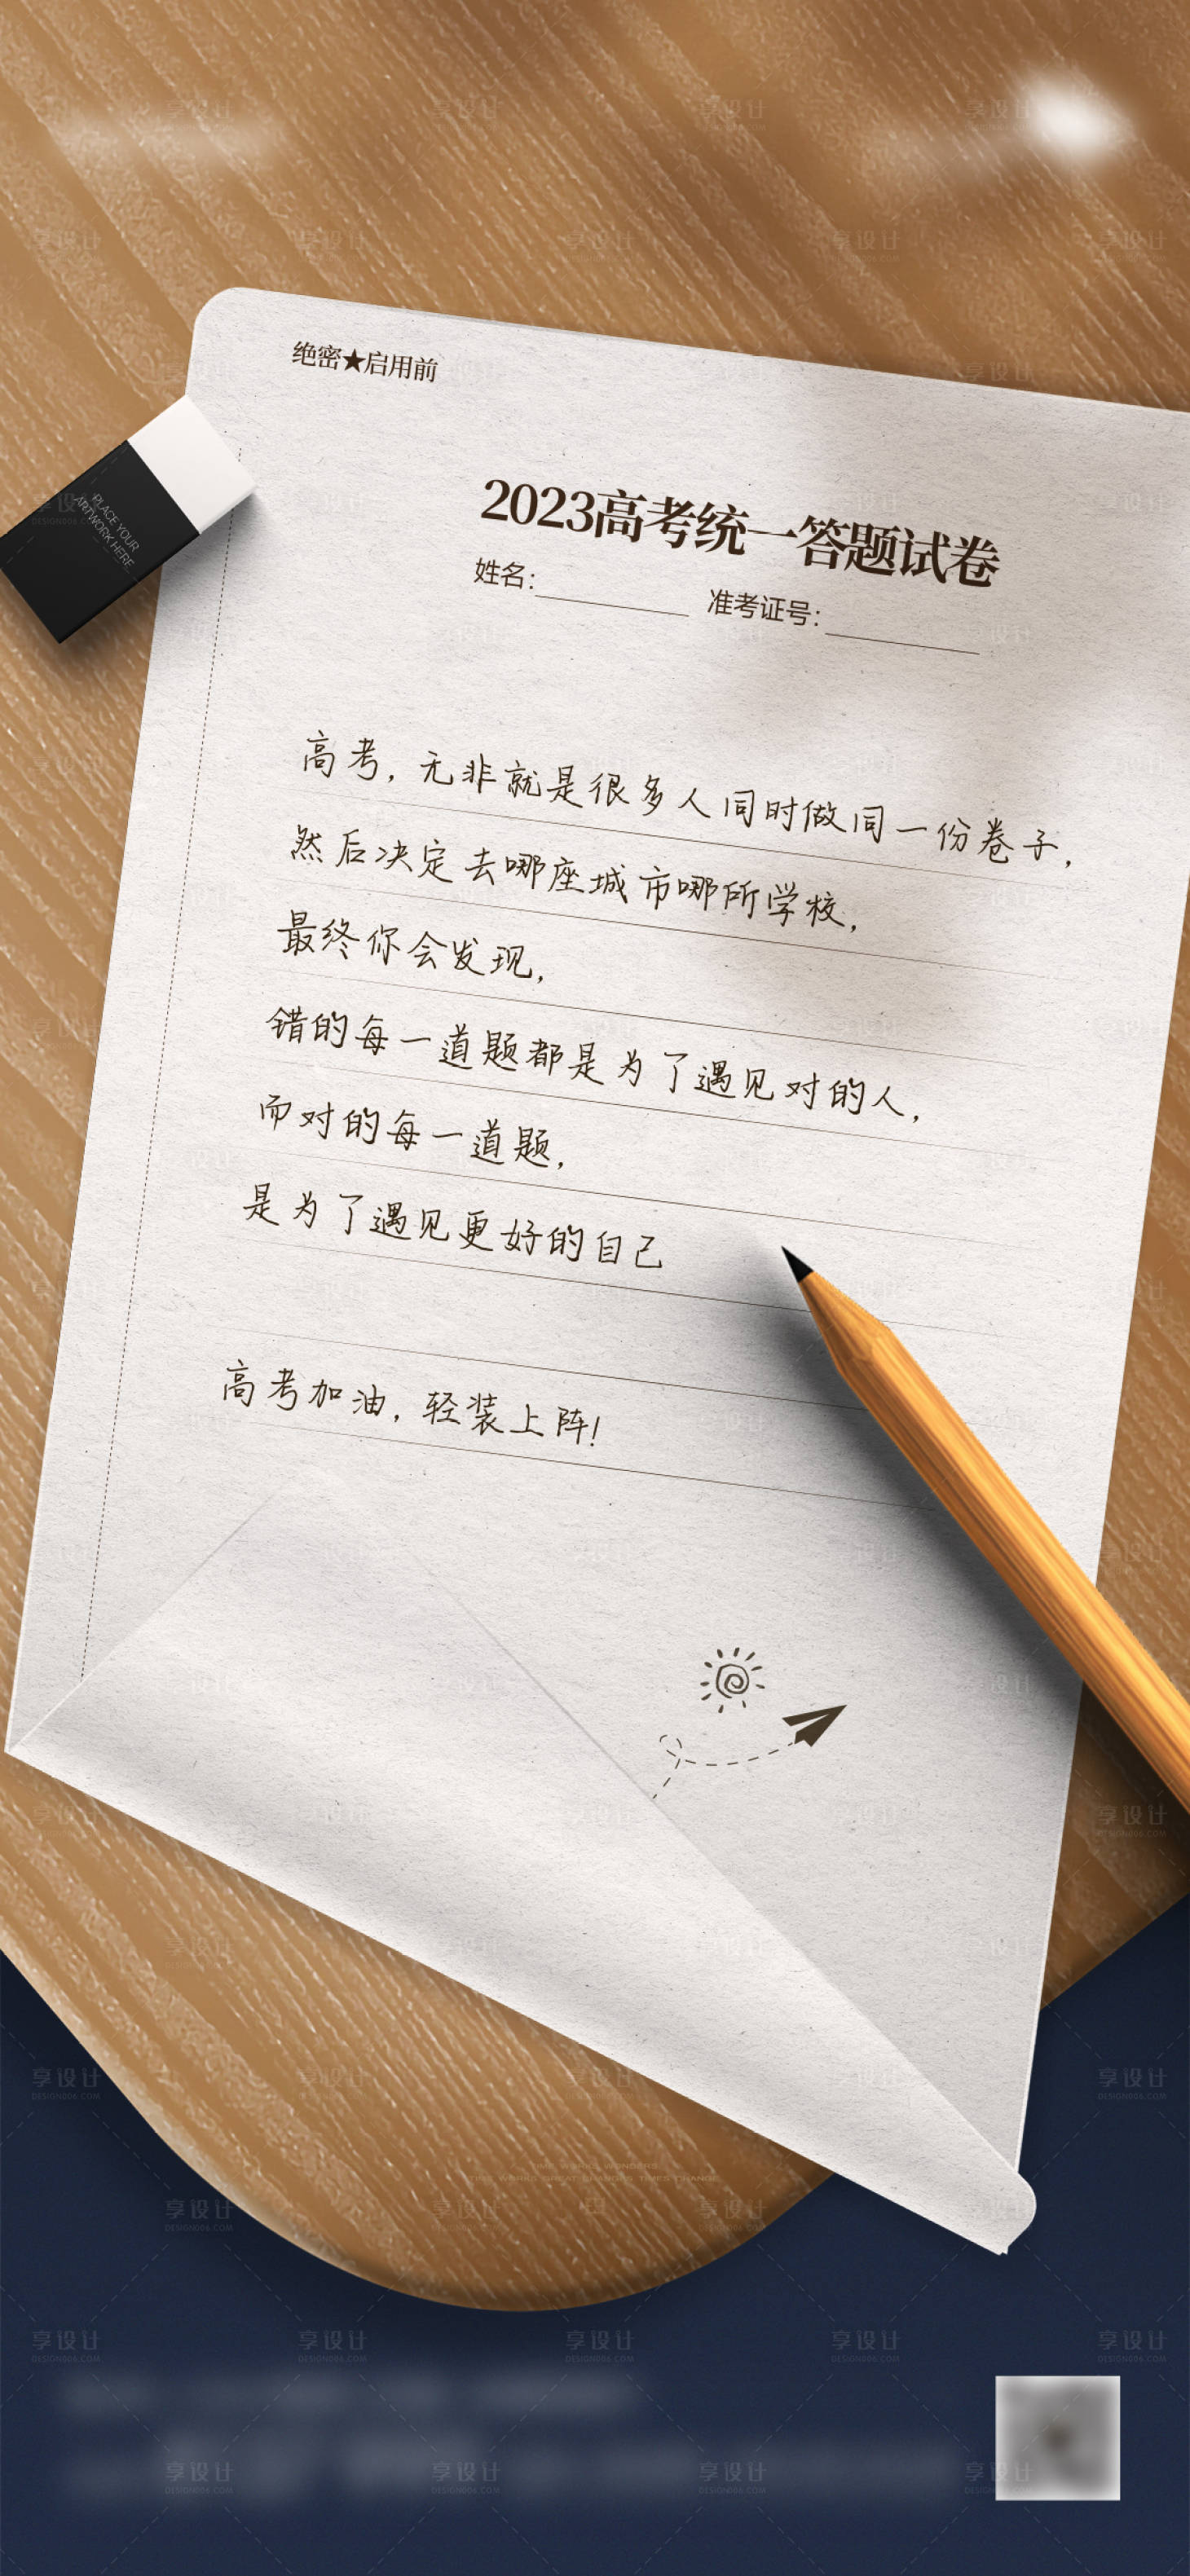 绝密★启用前
PLACE YOUR
ARTWORK HERE
2023高考统一答题试卷
姓名： 准考证号：
高考，无非就是很多人同时做同一份卷子，
然后决定去哪座城市哪所学校，
最终你会发现，
错的每一道题都是为了遇见对的人，
而对的每一道题，
是为了遇见更好的自己
高考加油，轻装上阵！
TIME WORKS WONDERS
TIME WORKS GREAT CHANGES TIMES CHANGE
享设计
DESIGN006.COM